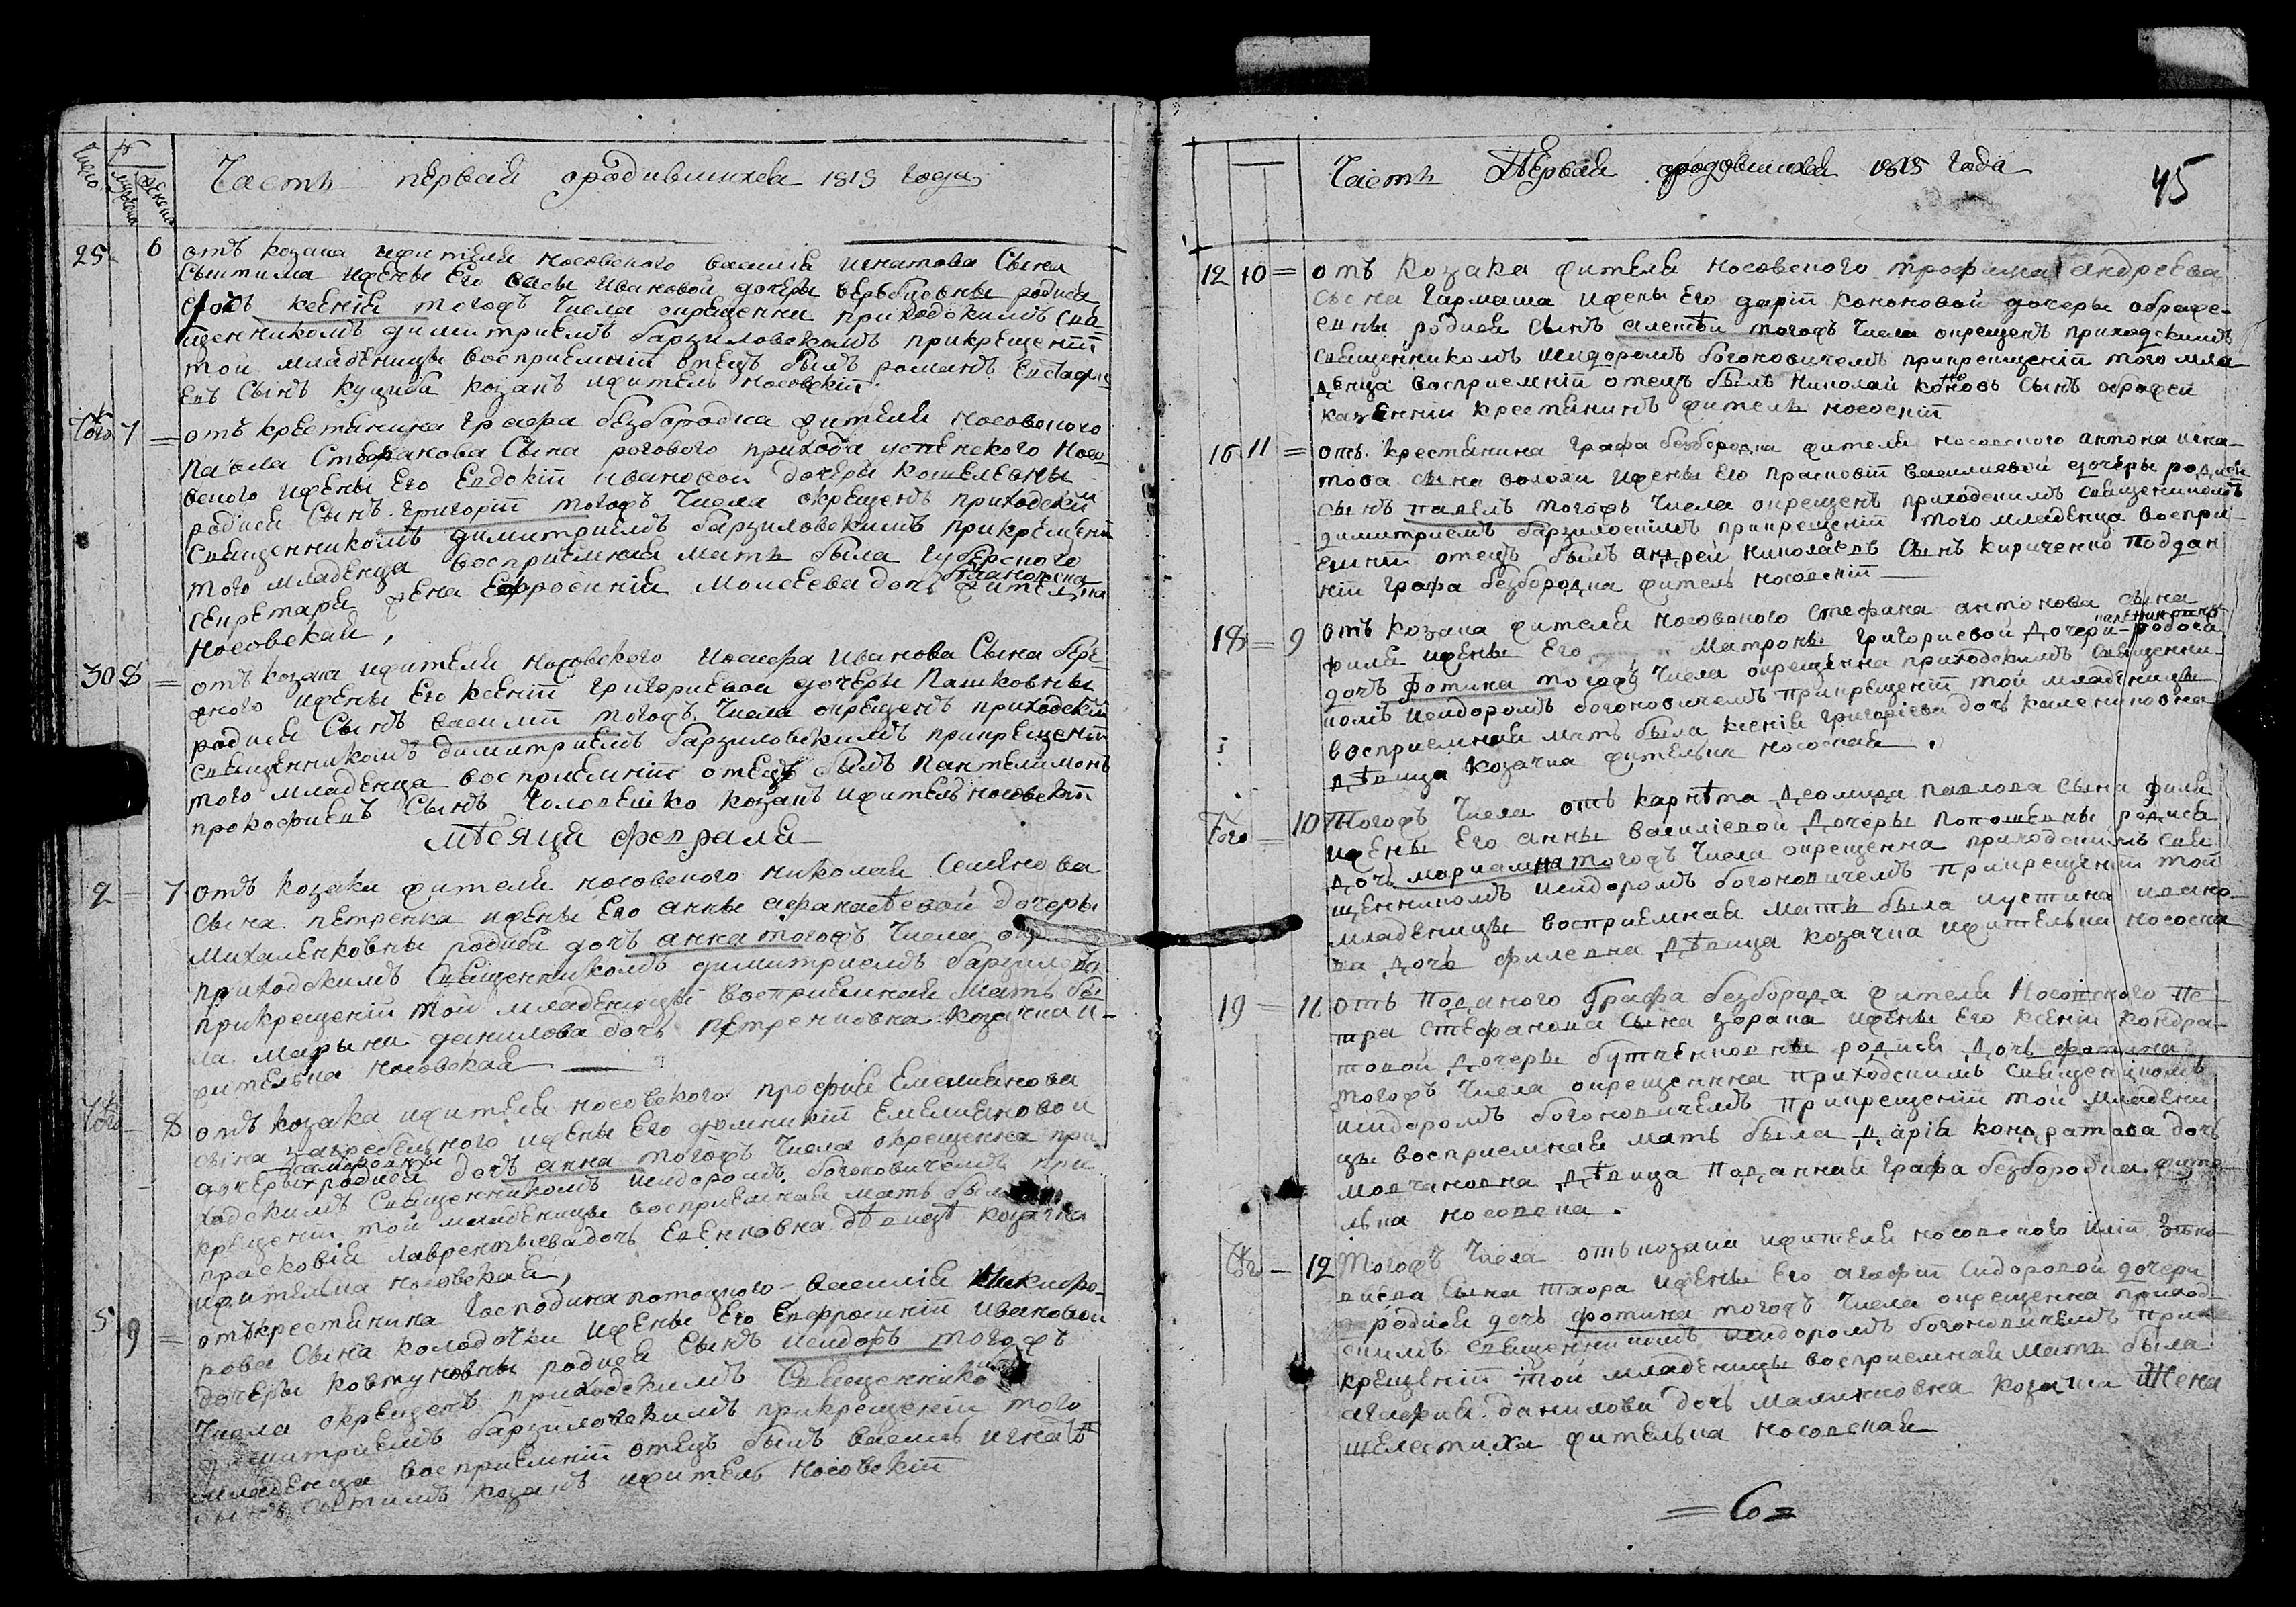 Число
Часть первая ородившихся 1813 года
25 6 отъ козака ижителя носовского василія игнатова Сына
Сынтила ижены Его Ивановой дочеры вербицовны родися
дочь ксенія тогожъ Числа окрещенна приходскимъ свя-
щенникомъ димитриемъ барзиловскимъ прикрещеніи
той младеницы восприемній отецъ былъ романъ Евстафи
Евъ Сынъ куциба козакъ ижитель носовскій.
Того 7 = отъ крестянина Графа безбородка жителя носовского
Павла Стефанова Сына рогового прихода успенского Носо-
вского ижены Его Евдокіи ивановой дочеры кошелевны
родися Сынъ Григорій тогожъ Числа окрещенъ приходскимъ
Священникомъ димитриемъ барзиловскимъ прикрещеніи
того младенца восприемная мать была губерского
Секретаря жена Ефросинія Моисеева дочь жителька
Носовская,
30 8 = отъ козака ижителя Носовского Иосифа Иванова Сына бере-
жного ижены Его ксеніи григориевой дочеры Пашковны
родися Сынъ василій тогожъ Числа окрещенъ приходскимъ
священникомъ димитриемъ барзиловскимъ прикрещеніи
того младенца восприемній отецъ былъ Пантелимонъ
прокофиевъ Сынъ Чоловешко козакъ ижитель носовскій
мѣсяца февраля
2 - 7 отъ козака жителя носовского николая Семенова
Сына петренка ижены Его анны афанасѣевой дочеры
Михаленковны родися дочь анна тогожъ Числа
приходскимъ Священникомъ димитриемъ барзиловск
прикрещеніи той младеницы восприемная мать бы-
ла марына данилова дочь петренковна козачка и-
жителька носовская
Того - 8 отъ козака ижителя носовского профия Емелианова
сына загребельного ижены Его домникіи Емелиановой
дочеры родися дочь анна тогожъ Числа окрещенна при-
ходскимъ Священникомъ исидоромъ богоновичемъ при
крещеніи той младеницы восприемная мать была
прасковія лаврентьева дочь Евенковна дѣвица козачка
ижителька носовская,
5 9 = открестянина Господина потоцкого василія Никифо-
рова Сына колодочки ижены Его Евфросиніи ивановой
дочеры ковтуновны родися Сынъ исидоръ тогожъ
Числа окрещенъ приходскимъ Священникомъ
димитриемъ барзиловскимъ прикрещеніи того
младенца восприемній отецъ былъ василь игнатъ
козакъ ижитель носовскій
Часть Первая ородовшихся 1813 года
45
12 10 = отъ козака жителя носовского трофима андреева
сына Гармаша ижены Его даріи кононовой дочеры ображе-
евны родися Сынъ алексѣи тогожъ Числа окрещенъ приходскимъ
священникомъ исидоромъ богоновичемъ прикрещеніи того мла
денца восприемній отецъ былъ николай кононовъ Сынъ ображей
казенній крестянинъ житель носовскій
16 11 = отъ крестянина графа безбородка жителя носовского антона игна-
това сына волохи ижены Его прасковіи василиевой дочеры родися
сынъ павелъ тогожъ Числа окрещенъ приходскимъ священникомъ
димитриемъ барзиловскимъ прикрещеніи того младенца воспри
емній отецъ былъ андрей николаевъ Сынъ кириченко поддан
ній графа безбородка житель носовскій
18 = 9 отъ козака жителя носовского стефана антонова сына
филя ижены Его Матроны григориевой дочери родися
дочь фотина тогожъ Числа окрещенна приходскимъ священни-
комъ исидоромъ богоновичемъ прикрещеніи той младеницы
восприемная мать была ксенія григорієва дочь калениковна
дѣвица козачка жителька носовская.
Того = 10 тогожъ Числа отъ карнѣта деомида павлова сына филя
ижены Его анны василіевой дочеры попошевны родися
дочь мариамна тогожъ Числа окрещенна приходскимъ свя
щенникомъ исидоромъ богоновичемъ прикрещеніи той
младеницы восприемная мать была иустина ивано-
ва дочь филевна дѣвица козачка ижителька носовска
19 = 11 отъ подданого Графа безборода жителя Носовского пе
тра стефанова сына зорана ижены Его ксеніи кондра-
товой дочеры бутченковны родися дочь фотина
тогожъ Числа окрещенна приходскимъ священикомъ
исидоромъ богоновичемъ прикрещеніи той младени
цы восприемная мать была дарія кондратова дочь
мовчановна дѣвица подданная графа безбородка жите-
лька носовска.
Того - 12 Тогожъ Числа отъ козака ижителя носовского иліи зѣно-
виева сына тхора ижены Его агафіи сидоровой дочери
родися дочь фотина тогожъ Числа окрещенна приход
скимъ священникомъ исидоромъ богоновичемъ при-
крещеніи той младеницы восприемная мать была
агафия данилова дочь малинковна козачка Жена
шелестиха жителька носовская
= 6 =